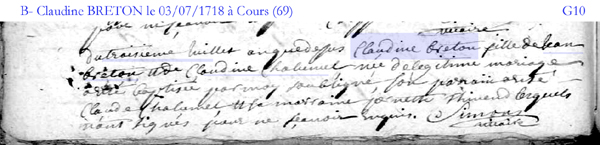 B- Claudine BRETON le 03/07/1718 à Cours (69) G10
pour ne scavoir
vicaire
Du troisieme Juillet an que dessus Claudine breton fille de Jean
breton et de Claudine Chalumet née de legitime mariage
a été baptisée par moy soubsigné son parrain a été
Claude Chalumet et sa marraine pernette thivend lesquels
n'ont signés pour ne scavoir enquis. Simon
vicaire